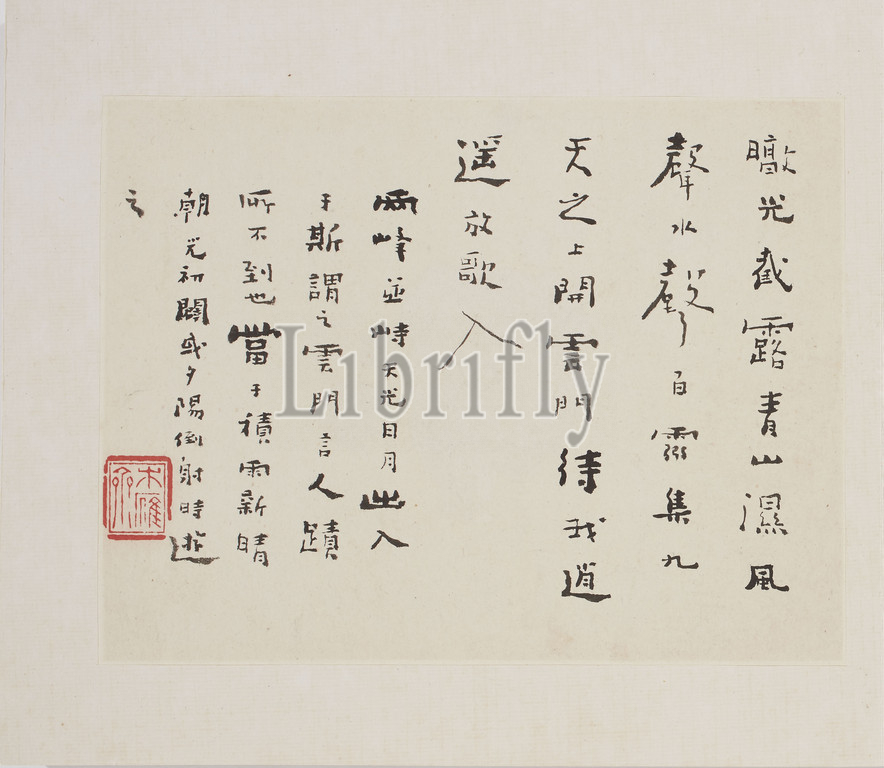 曒光截露青山濕風
聲水聲百靈集九
天之上開雲門待我逍
遥放歌入
兩峰並峙天光日月出入
于斯謂之雲門言人蹟
所不到也當于積雨新晴
朝光初闢或夕陽倒射時遊
之
木雁
Librifly